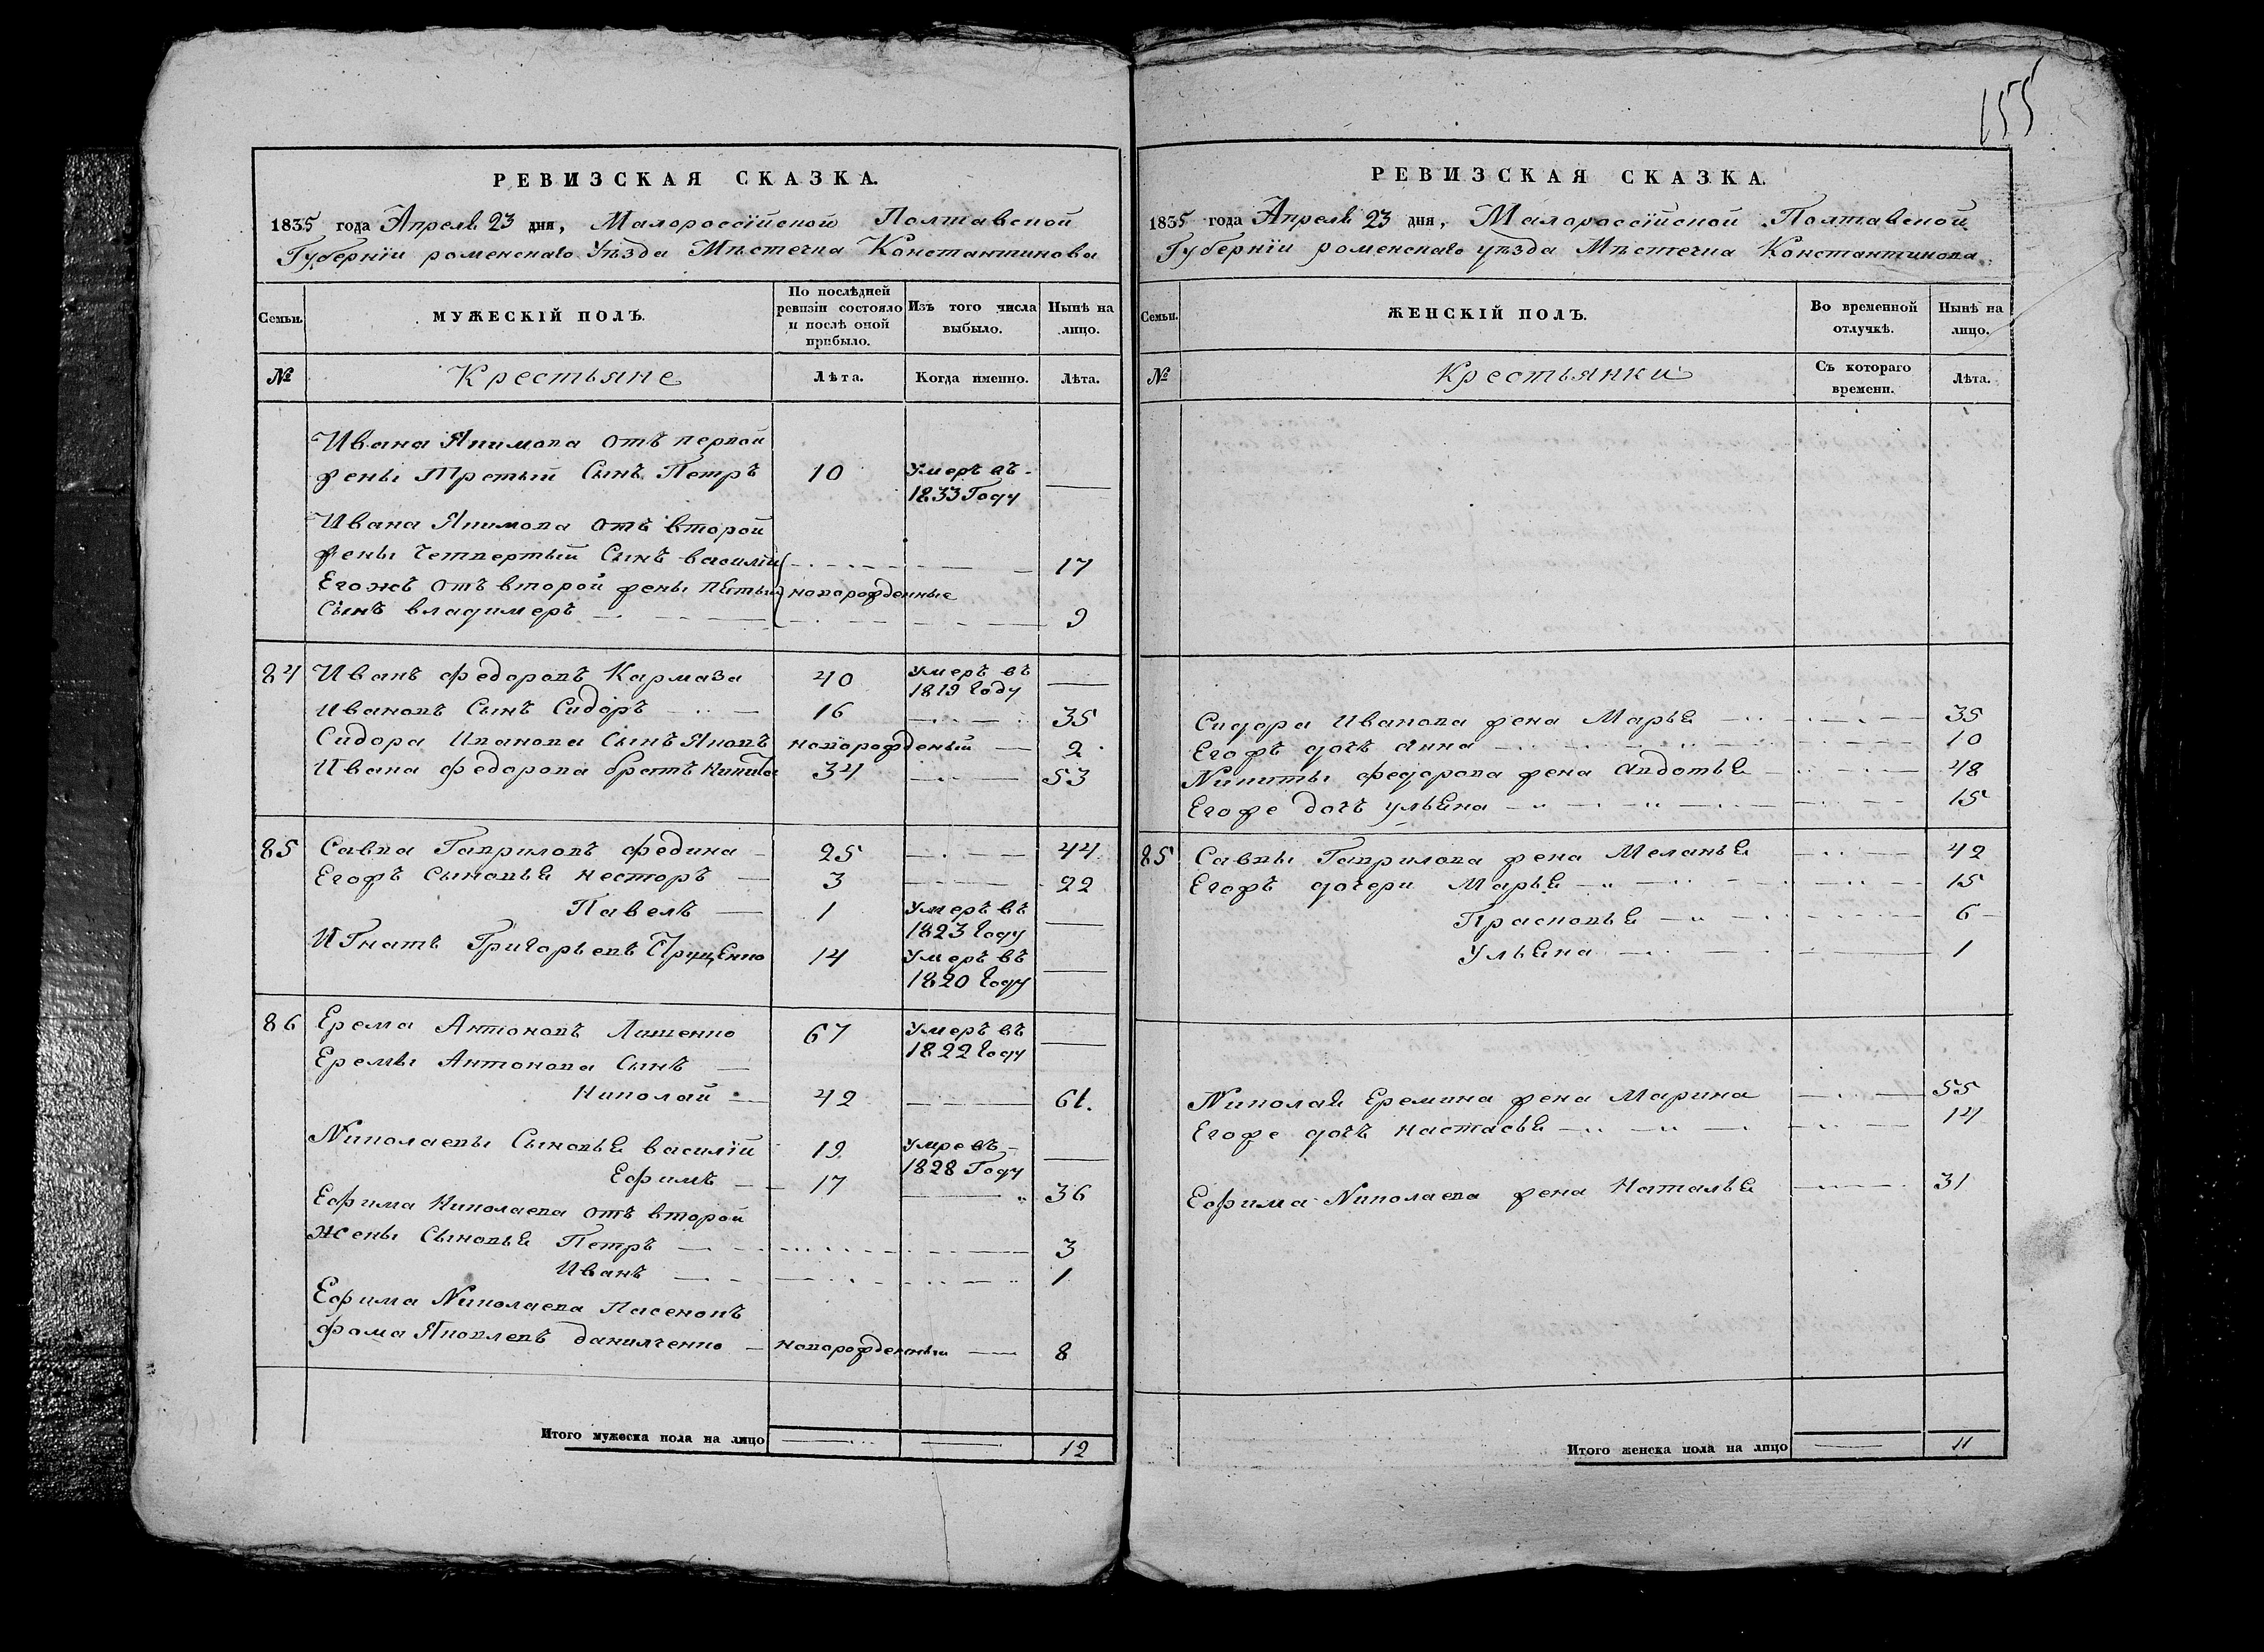 155
РЕВИЗСКАЯ СКАЗКА.
1835 года Апреля 23 дня, Малороссійской Полтавской
Губерніи роменскаго Уѣзда Мѣстечка Константинова
Семьи.
МУЖЕСКІЙ ПОЛЪ.
По послѣдней ревизіи состояло и послѣ оной прибыло.
Изъ того числа выбыло.
Нынѣ на лицо.
№
Крестьяне
Лѣта.
Когда именно.
Лѣта.
Ивана Якимова отъ первой
жены Третьи Сынъ Петръ 10 Умеръ въ 1833 Году
Ивана Якимова отъ второй
жены Четвертый Сынъ василій 17
Егожъ отъ второй жены пятый новорожденные
Сынъ владимеръ 9
84 Иванъ федоровъ Кармаза 40 Умеръ въ 1819 Году
Ивановъ Сынъ Сидоръ 16 35
Сидора Иванова Сынъ Яковъ новорожденый 2
Ивана федорова братъ никита 34 53
85 Савва Гавриловъ федина 25 44
Егожъ Сыновья несторъ 3 22
Павелъ 1 Умеръ въ 1823 Году
Игнатъ Григорьевъ 14 Умеръ въ 1820 Году
86 Ерема Антоновъ Лашенко 67 Умеръ въ 1822 Году
Еремы Антонова Сынъ
николай 42 61.
Николаевы Сыновья василій 19 Умре въ 1828 Году
Ефимъ 17 36
Ефима Николаева отъ второй
Жены Сыновья Петръ 3
Иванъ 1
Ефима Николаева Пасенокъ
фома Яковлевъ данилченко новорожденный 8
Итого мужеска пола на лицо 12
РЕВИЗСКАЯ СКАЗКА.
1835 года Апреля 23 дня, Малороссійской Полтавской
Губерніи роменскаго уѣзда Мѣстечка Константинова
Семьи.
ЖЕНСКІЙ ПОЛЪ.
Во временной отлучкѣ.
Нынѣ на лицо.
№
Крестьянки
Съ котораго времени.
Лѣта.
Сидора Иванова жена Марья 35
Егожъ дочъ анна 10
Никиты федорова жена авдотья 48
Егоже дочъ ульяна 15
85 Саввы Гаврилова жена Меланья 42
Егожъ дочери Марья 15
Прасковья 6
Ульяна 1
Николая Еремина жена Марина 55
Егоже дочъ настасья 14
Ефима Николаева жена Наталья 31
Итого женска пола на лицо 11